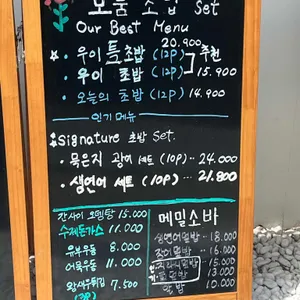 모둠 초밥 Set
Our Best Menu
20.900
· 우이 특초밥 (12P) 추천
· 우이 초밥 (12P) 15.900
· 오늘의 초밥 (12P) 14.900
인기 메뉴
Signature 초밥 Set.
· 묵은지 광어 세트 (10P) 24.000
· 생연어 세트 (10P) 21.800
간사이 오뎅탕 15.000
수제돈가스 11.000
우부우동 8.000
어묵우동 11.000
왕새우튀김 7.500
(2P)
메밀소바
생연어덮밥 18.000
장어덮밥 16.000
15.000
13.000
알밥 10.000